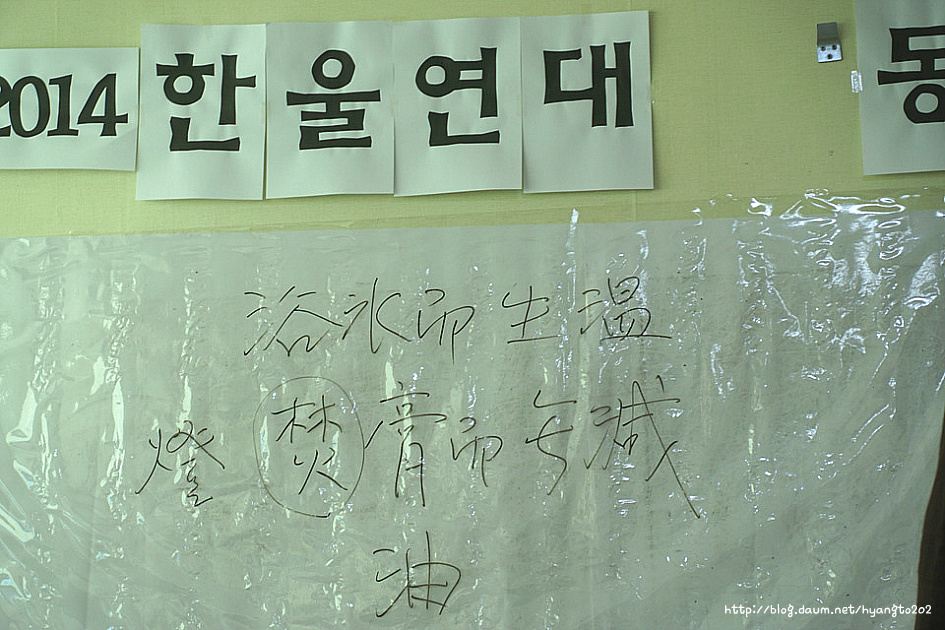 2014 한울연대 동
浴水而生温
燈 焚膏而 滅
油
http://blog.daum.net/hyangto202